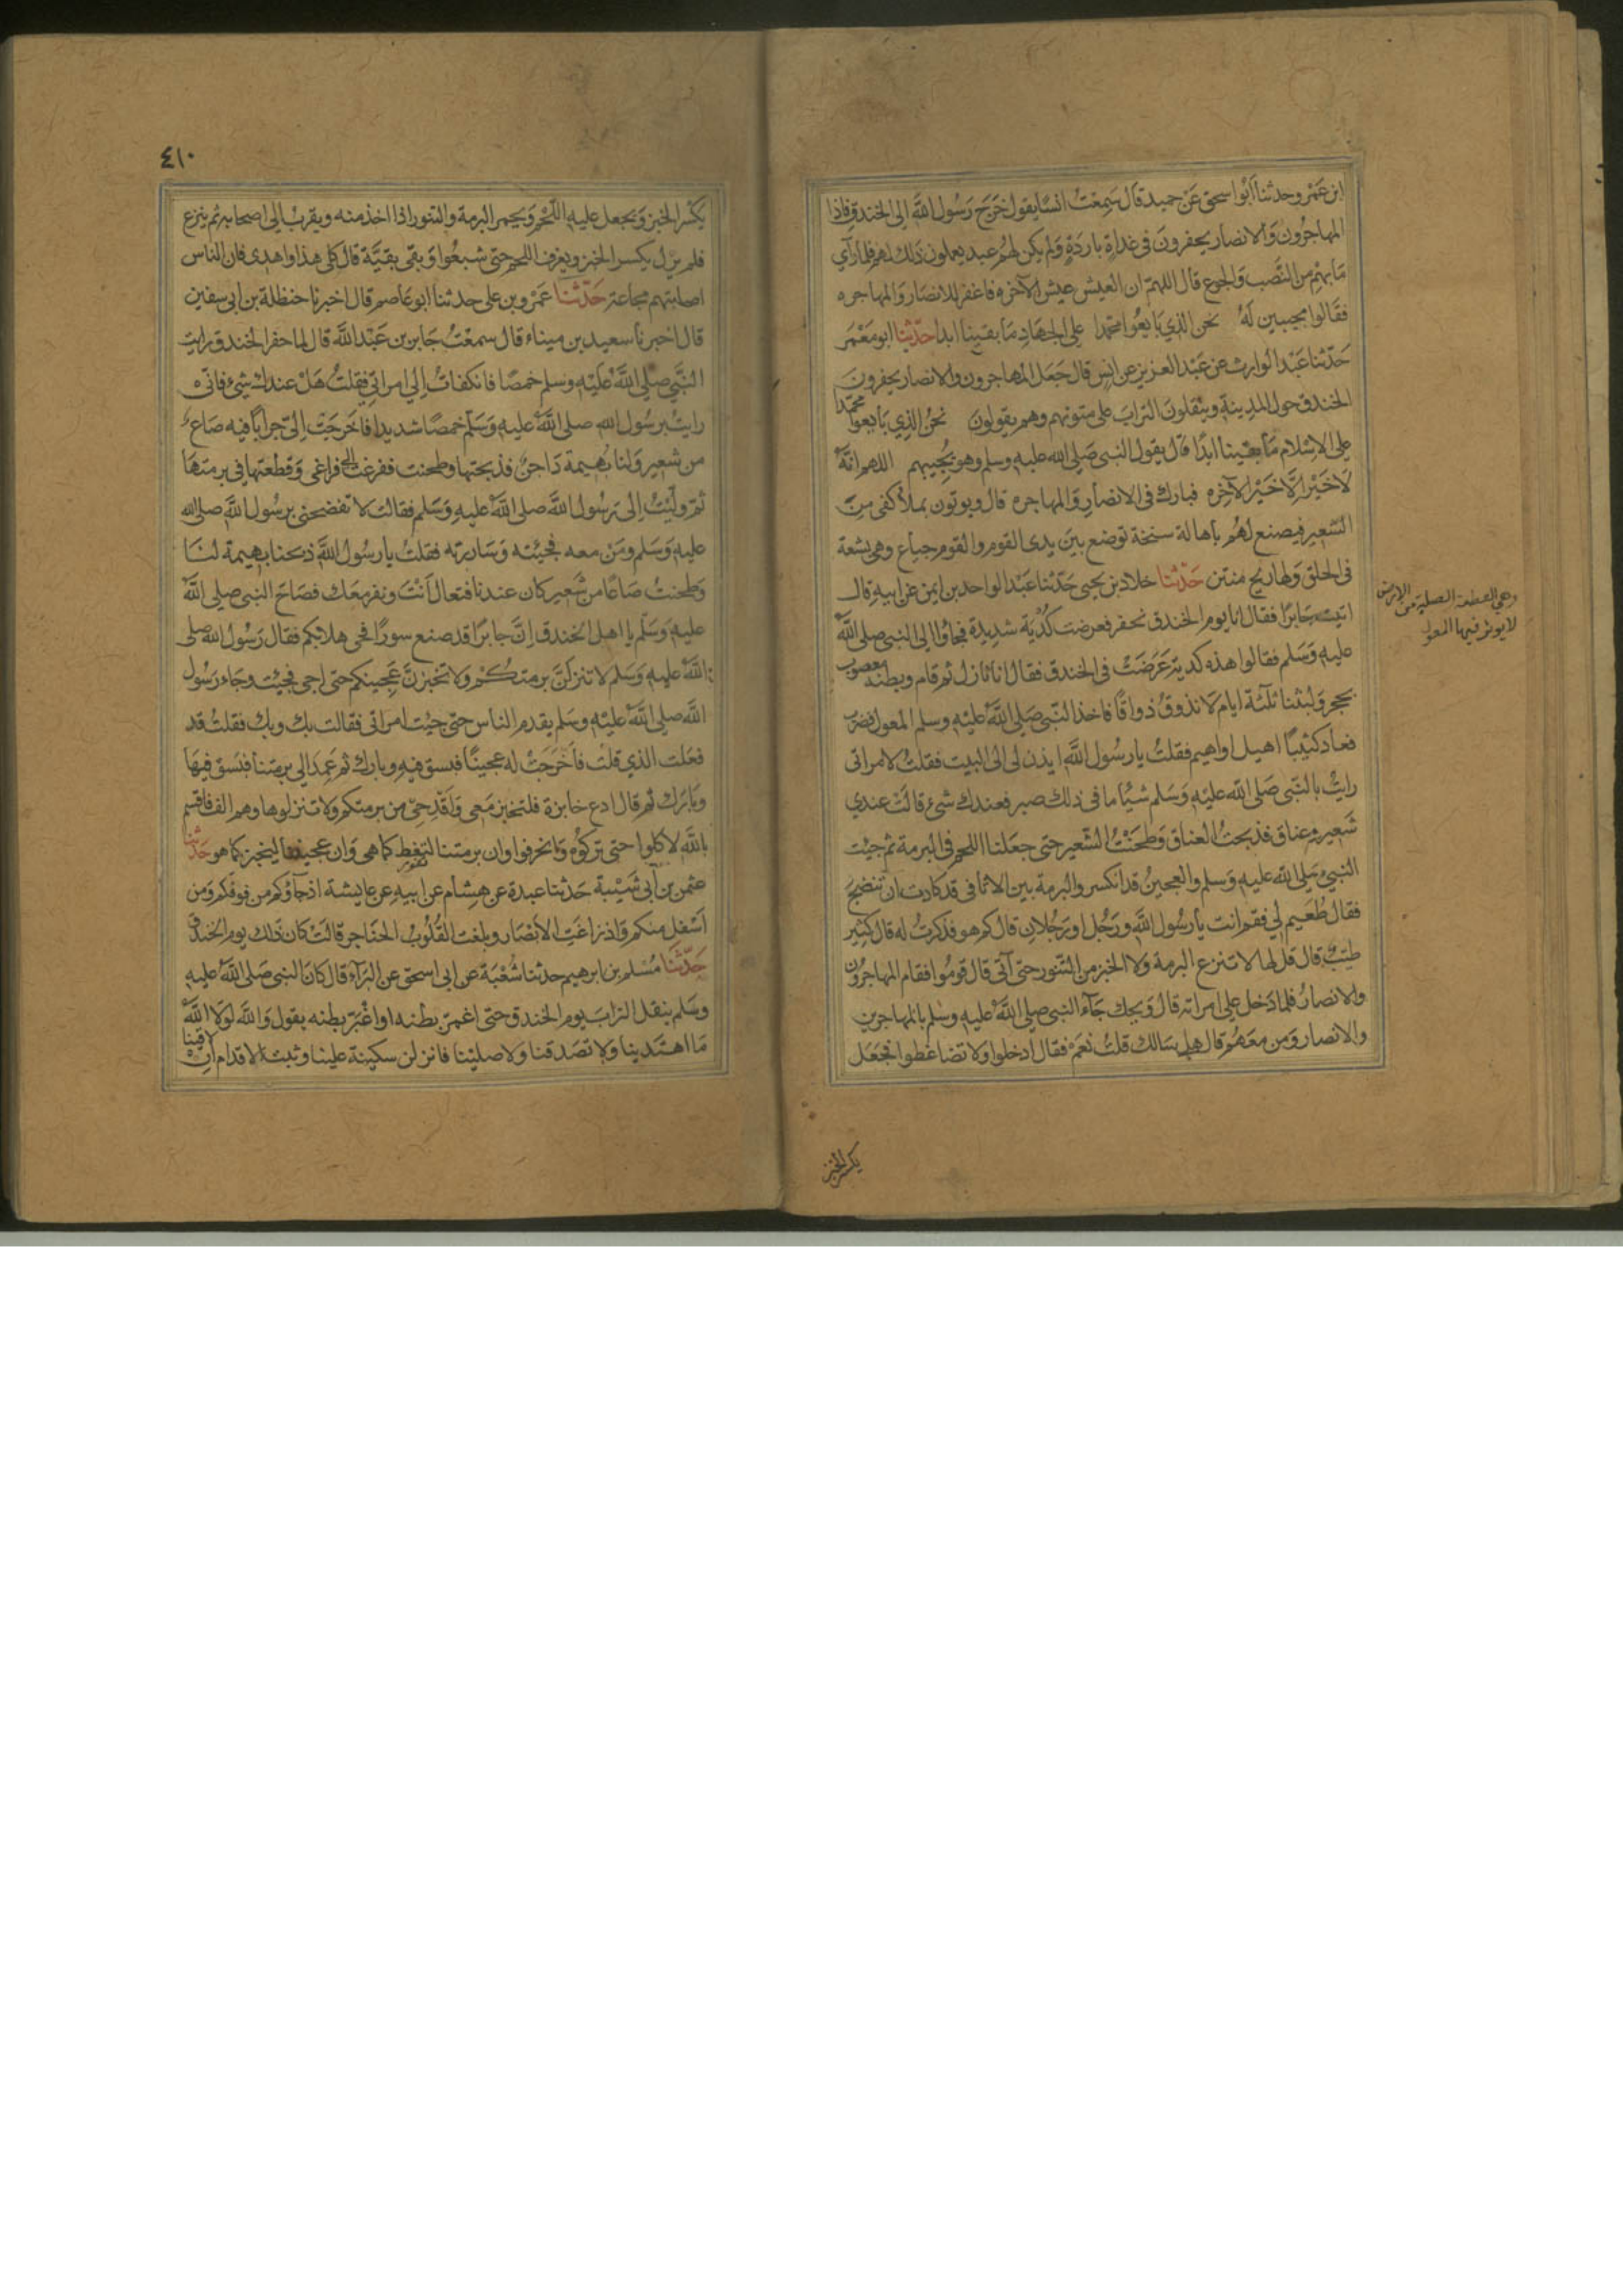 ابن عمر وحدثنا أبو اسحق عن حميد قال سمعت انسا يقول خرج رسول الله الى الخندق فاذا
المهاجرون والانصار يحفرون في غداة باردة ولم يكن لهم عبيد يعملون ذلك لهم فلما رأى
ما بهم من النصب والجوع قال اللهم ان العيش عيش الآخره فاغفر للانصار والمهاجره
فقالوا مجيبين له نحن الذي بايعوا محمدا على الجهاد ما بقينا ابدا حدثنا ابو معمر
حدثنا عبد الوارث عن عبد العزيز عن انس قال جعل المهاجرون والانصار يحفرون
الخندق حول المدينة وينقلون التراب على متونهم وهم يقولون نحن الذي بايعوا محمدا
على الاسلام ما بقينا ابدا قال يقول النبي صلى الله عليه وسلم وهو يجيبهم اللهم انه
لا خير الا خير الآخره فبارك في الانصار والمهاجره قال ويوتون بملأ كفى من
الشعير فيصنع لهم باهالة سنخة توضع بين يدى القوم والقوم جياع وهي بشعة
في الحلق ولها ريح منتن حدثنا خلاد بن يحيى حدثنا عبد الواحد بن ايمن عن ابيه قال
اتيت جابرا فقال انا يوم الخندق نحفر فعرضت كدية شديدة فجاؤا الى النبي صلى الله
عليه وسلم فقالوا هذه كدية عرضت في الخندق فقال انا نازل ثم قام وبطنه معصوب
بحجر ولبثنا ثلثة ايام لا نذوق ذواقا فاخذ النبي صلى الله عليه وسلم المعول فضرب
فعاد كثيبا اهيل او اهيم فقلت يا رسول الله ايذن لى الى البيت فقلت لامراتى
رايت بالنبي صلى الله عليه وسلم شيئا ما في ذلك صبر فعندك شئ قالت عندى
شعير وعناق فذبحت العناق وطحنت الشعير حتى جعلنا اللحم في البرمة ثم جيت
النبي صلى الله عليه وسلم والعجين قد انكسر والبرمة بين الاثافى قد كادت ان تنضج
فقال طعيم لي فقم انت يا رسول الله ورجل او رجلان قال كم هو فذكرت له قال كثير
طيب قال قل لها لا تنزع البرمة ولا الخبز من التنور حتى آتى قال قوموا فقام المهاجرون
والانصار فلما دخل على امراته قال ويحك جآء النبي صلى الله عليه وسلم بالمهاجرين
والانصار ومن معهم قال هل سالك قلت نعم فقال ادخلوا ولا تضاغطوا فجعل
وهي القطعة الصلبة من الارض
لا يوثر فيها المعول
يكسر الخبز
٤١٠
يكسر الخبز ويجعل عليه اللحم ويخمر البرمة والتنور اذا اخذ منه ويقرب الى اصحابه ثم ينزع
فلم يزل يكسر الخبز ويغرف اللحم حتى شبعوا وبقى بقية قال كلى هذا واهدى فان الناس
اصابتهم مجاعة حدثنا عمرو بن على حدثنا ابو عاصم قال اخبرنا حنظلة بن ابى سفين
قال اخبرنا سعيد بن ميناء قال سمعت جابر بن عبد الله قال لما حفر الخندق رايت
النبي صلى الله عليه وسلم خمصا فانكفات الى امراتى فقلت هل عندك شئ فانى
رايت برسول الله صلى الله عليه وسلم خمصا شديدا فاخرجت الى جرابا فيه صاع
من شعير ولنا بهيمة داجن فذبحتها وطحنت ففرغت الى فراغى وقطعتها في برمتها
ثم وليت الى رسول الله صلى الله عليه وسلم فقالت لا تفضحنى برسول الله صلى الله
عليه وسلم ومن معه فجيئته وساررته فقلت يا رسول الله ذبحنا بهيمة لنا
وطحنت صاعا من شعير كان عندنا فتعال انت ونفر معك فصاح النبي صلى الله
عليه وسلم يا اهل الخندق ان جابرا قد صنع سورا فحى هلا بكم فقال رسول الله صلى
الله عليه وسلم لا تنزلن برمتكم ولا تخبزن عجينكم حتى اجى فجيئت وجاء رسول
الله صلى الله عليه وسلم يقدم الناس حتى جيت امراتى فقالت بك وبك فقلت قد
فعلت الذي قلت فاخرجت له عجينا فبسق فيه وبارك ثم عمد الى برمتنا فبسق فيها
وبارك ثم قال ادع خابزة فلتخبز معى واقدحى من برمتكم ولا تنزلوها وهم الف فاقسم
بالله لاكلوا حتى تركوه وانحرفوا وان برمتنا لتغط كما هى وان عجيننا ليخبز كما هو حدثنا
عثمن بن أبى شيبة حدثنا عبدة عن هشام عن ابيه عن عايشة اذ جآؤكم من فوقكم ومن
اسفل منكم واذ زاغت الأبصار وبلغت القلوب الحناجر قالت كان ذلك يوم الخندق
حدثنا مسلم بن ابرهيم حدثنا شعبة عن ابى اسحق عن البرآء قال كان النبي صلى الله عليه
وسلم ينقل التراب يوم الخندق حتى اغمر بطنه او اغبر بطنه يقول والله لولا الله
ما اهتدينا ولا تصدقنا ولا صلينا فانزلن سكينة علينا وثبت الاقدام ان لاقينا